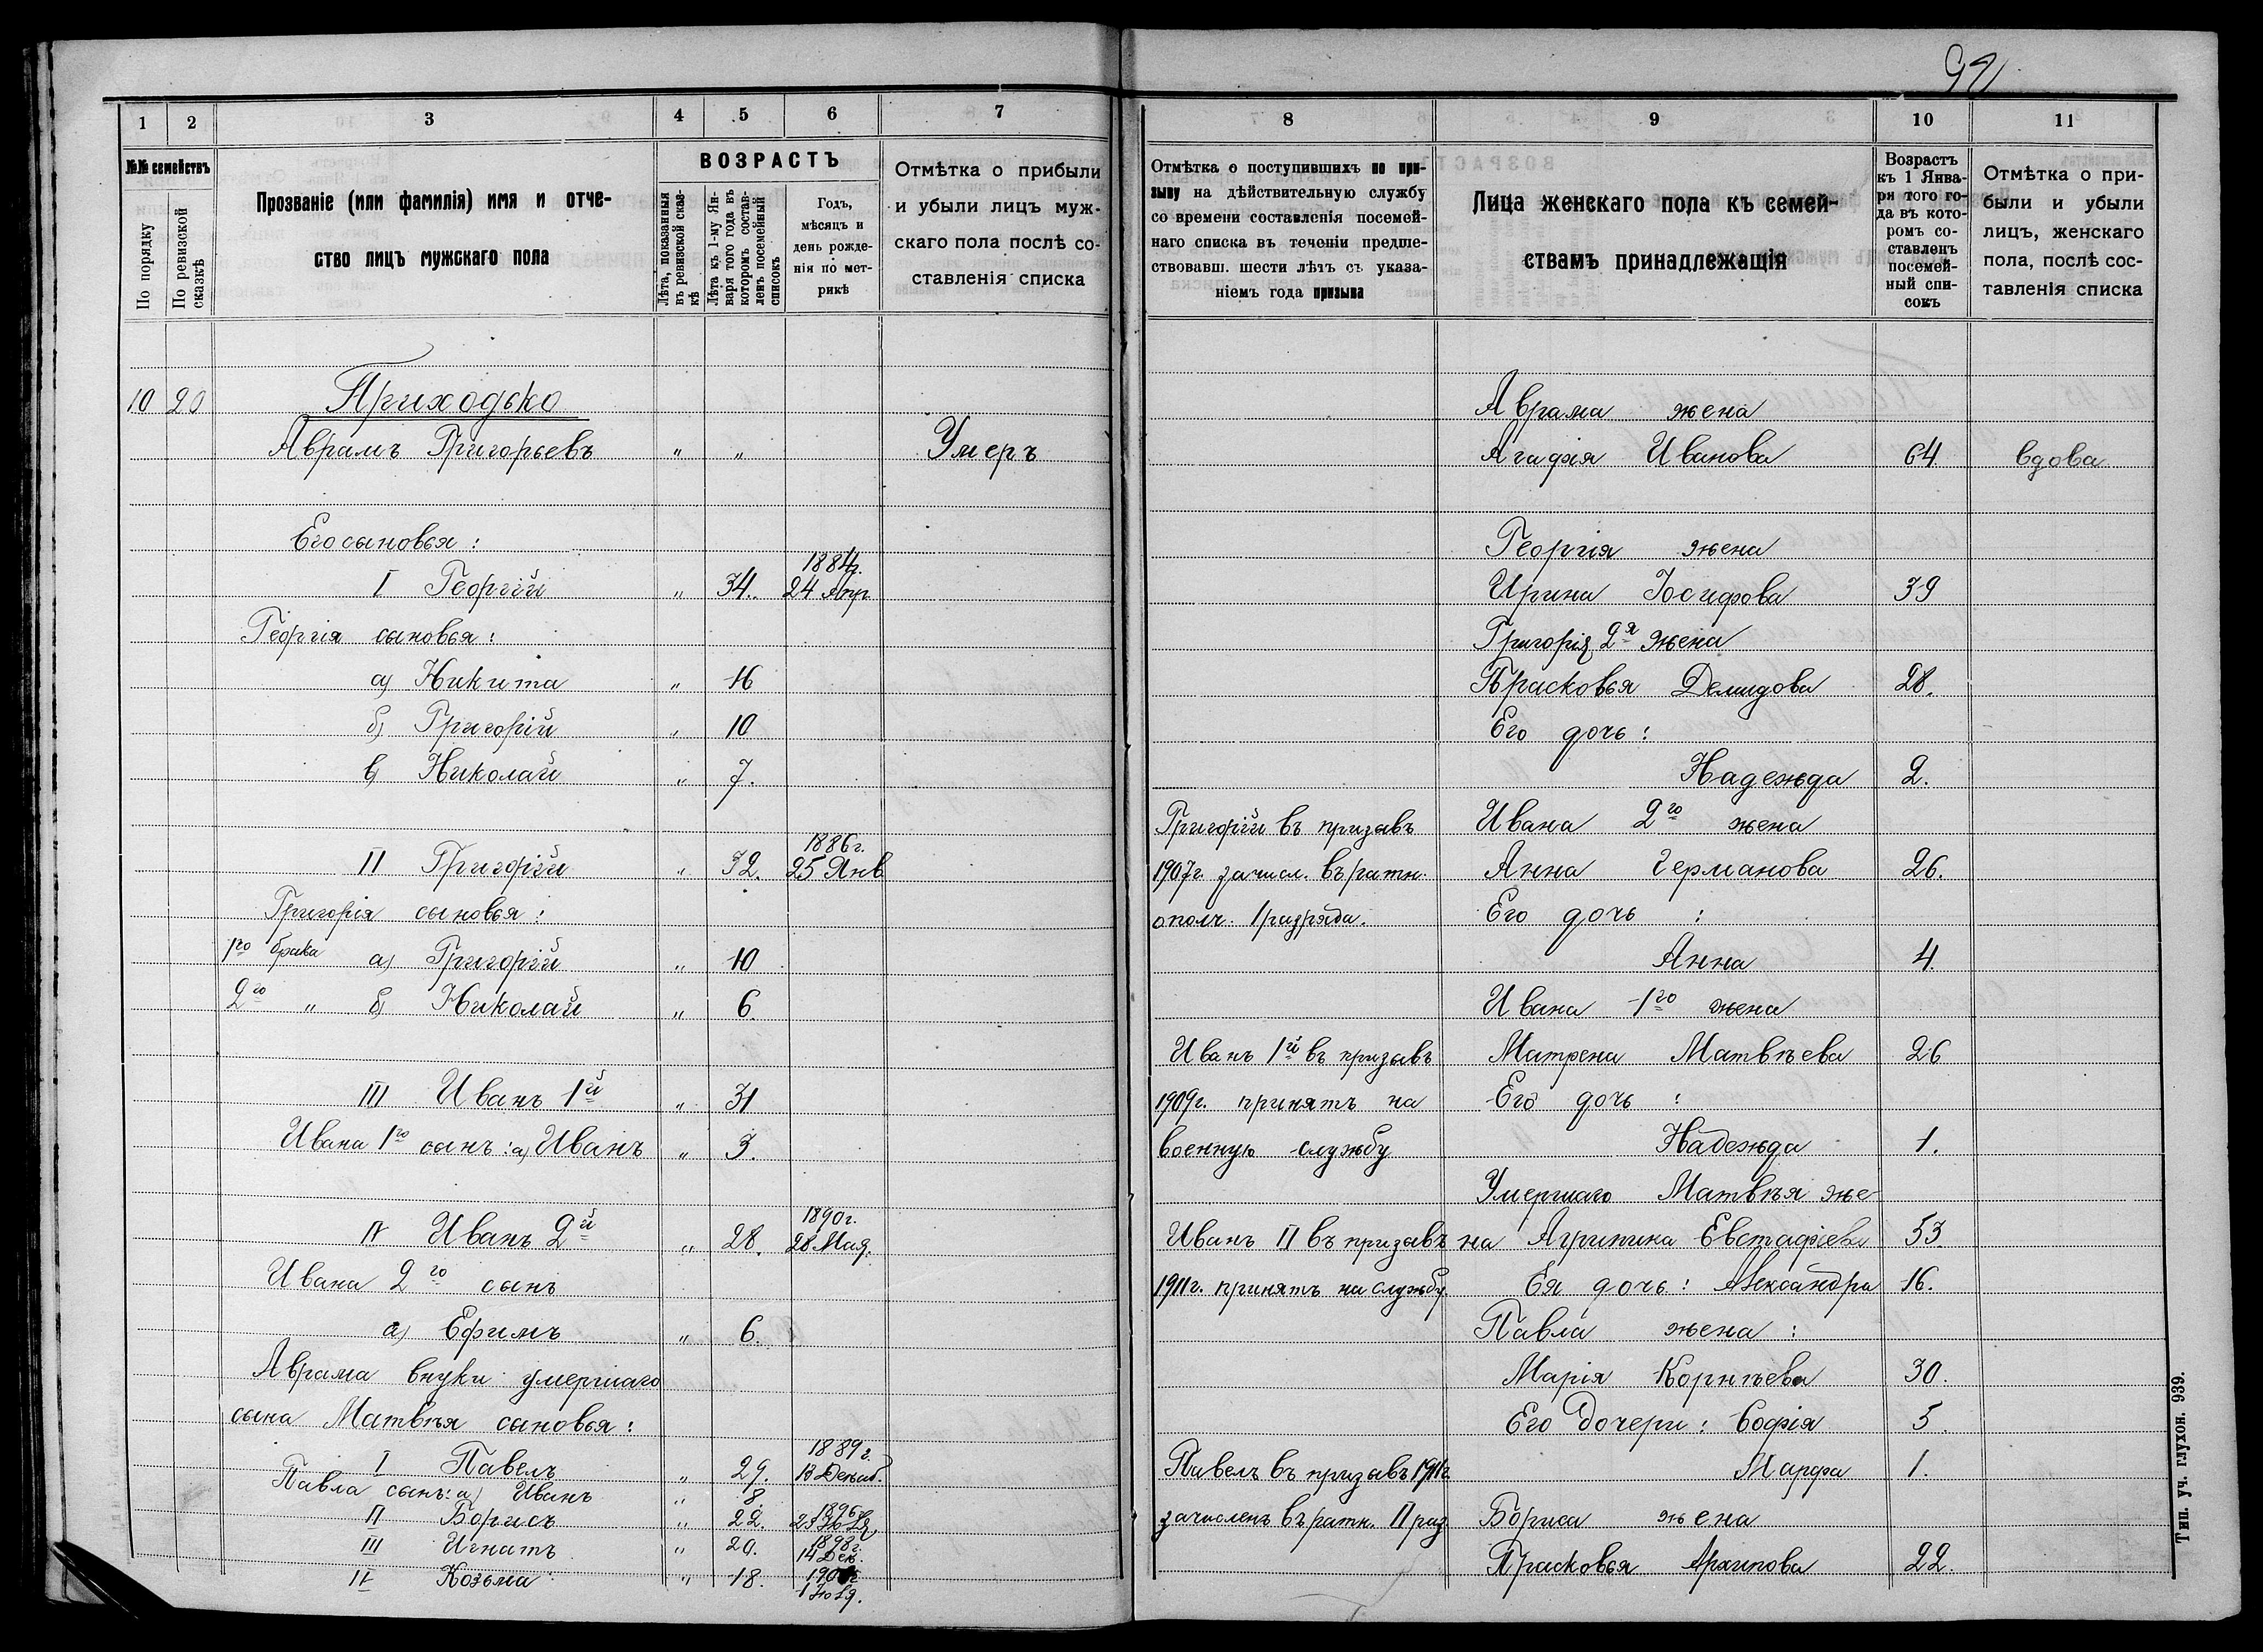 92
1 2 3 4 5 6 7
№№ семействъ
По порядку
По ревизской сказкѣ
Прозваніе (или фамилія) имя и отче-
ство лицъ мужскаго пола
ВОЗРАСТЪ
Лѣта, показанныя въ ревизской сказ-кѣ
Лѣта къ 1-му Ян-варя того года въ которомъ состав-ленъ посемейный списокъ
Годъ,
мѣсяцъ и
день рожде-
нія по мет-
рикѣ
Отмѣтка о прибыли
и убыли лицъ муж-
скаго пола послѣ со-
ставленія списка
10 20 Приходько
Аврамъ Григорьевъ " " Умеръ
Его сыновья:
1884г.
I Георгій " 34. 24 Апр.
Георгія сыновья:
а) Никита " 16
б) Григорій " 10
в) Николай " 7.
1886г.
II Григорій " 32. 25 Янв
Григорія сыновья:
1го брака а) Григорій " 10
2го " б) Николай " 6.
III Иванъ 1й " 31
Ивана 1го сынъ: а) Иванъ " 3.
1890г.
IV Иванъ 2й " 28. 28 Мая.
Ивана 2го сынъ
а) Ефимъ " 6.
Аврама внуки умершаго
сына Матвѣя сыновья:
1889г.
I Павелъ " 29. 13 Декаб.
Павла сынъ: а) Иванъ " 8.
1896г.
II Борисъ " 22.
1898г.
III Игнатъ " 20. 14 Дек.
IV Козьма " 18.
1 Юля.
8 9 10 11
Отмѣтка о поступившихъ по при-
зыву на дѣйствительную службу
со времени составленія посемей-
наго списка въ теченіи предше-
ствовавш. шести лѣтъ съ указа-
ніемъ года призыва
Лица женскаго пола къ семей-
ствамъ принадлежащія
Возрастъ
къ 1 Янва-
ря того го-
да въ кото-
ромъ со-
ставленъ
посемей-
ный спи-
сокъ
Отмѣтка о при-
были и убыли
лицъ, женскаго
пола, послѣ сос-
тавленія списка
Аврама жена
Агафія Иванова 64 вдова
Георгія жена
Ирина Іосифова 39
Григорія 2я жена
Прасковья Демидова 28.
Его дочь:
Надежда 2.
Григорій въ призывъ Ивана 2го жена
1907г. зачисл. въ ратн. Анна Германова 26.
ополч. 1 разряда. Его дочь :
Анна 4.
Ивана 1го жена
Иванъ 1й въ призывъ Матрена Матвѣева 26
1909г. принятъ на Его дочь :
военную службу Надежда 1.
Умершаго Матвѣя же-
Иванъ II въ призывъ на Агрипина Евстафіева 53.
1911г. принятъ на службу. Ея дочь: Александра 16.
Павла жена :
Марія Корнѣева 30.
Его дочери: Софія 5.
Павелъ въ призывъ 1911г. Марфа 1.
зачисленъ въ ратн. II раз. Бориса жена
Прасковья Архипова 22.
Тип. уч. глухон. 939.